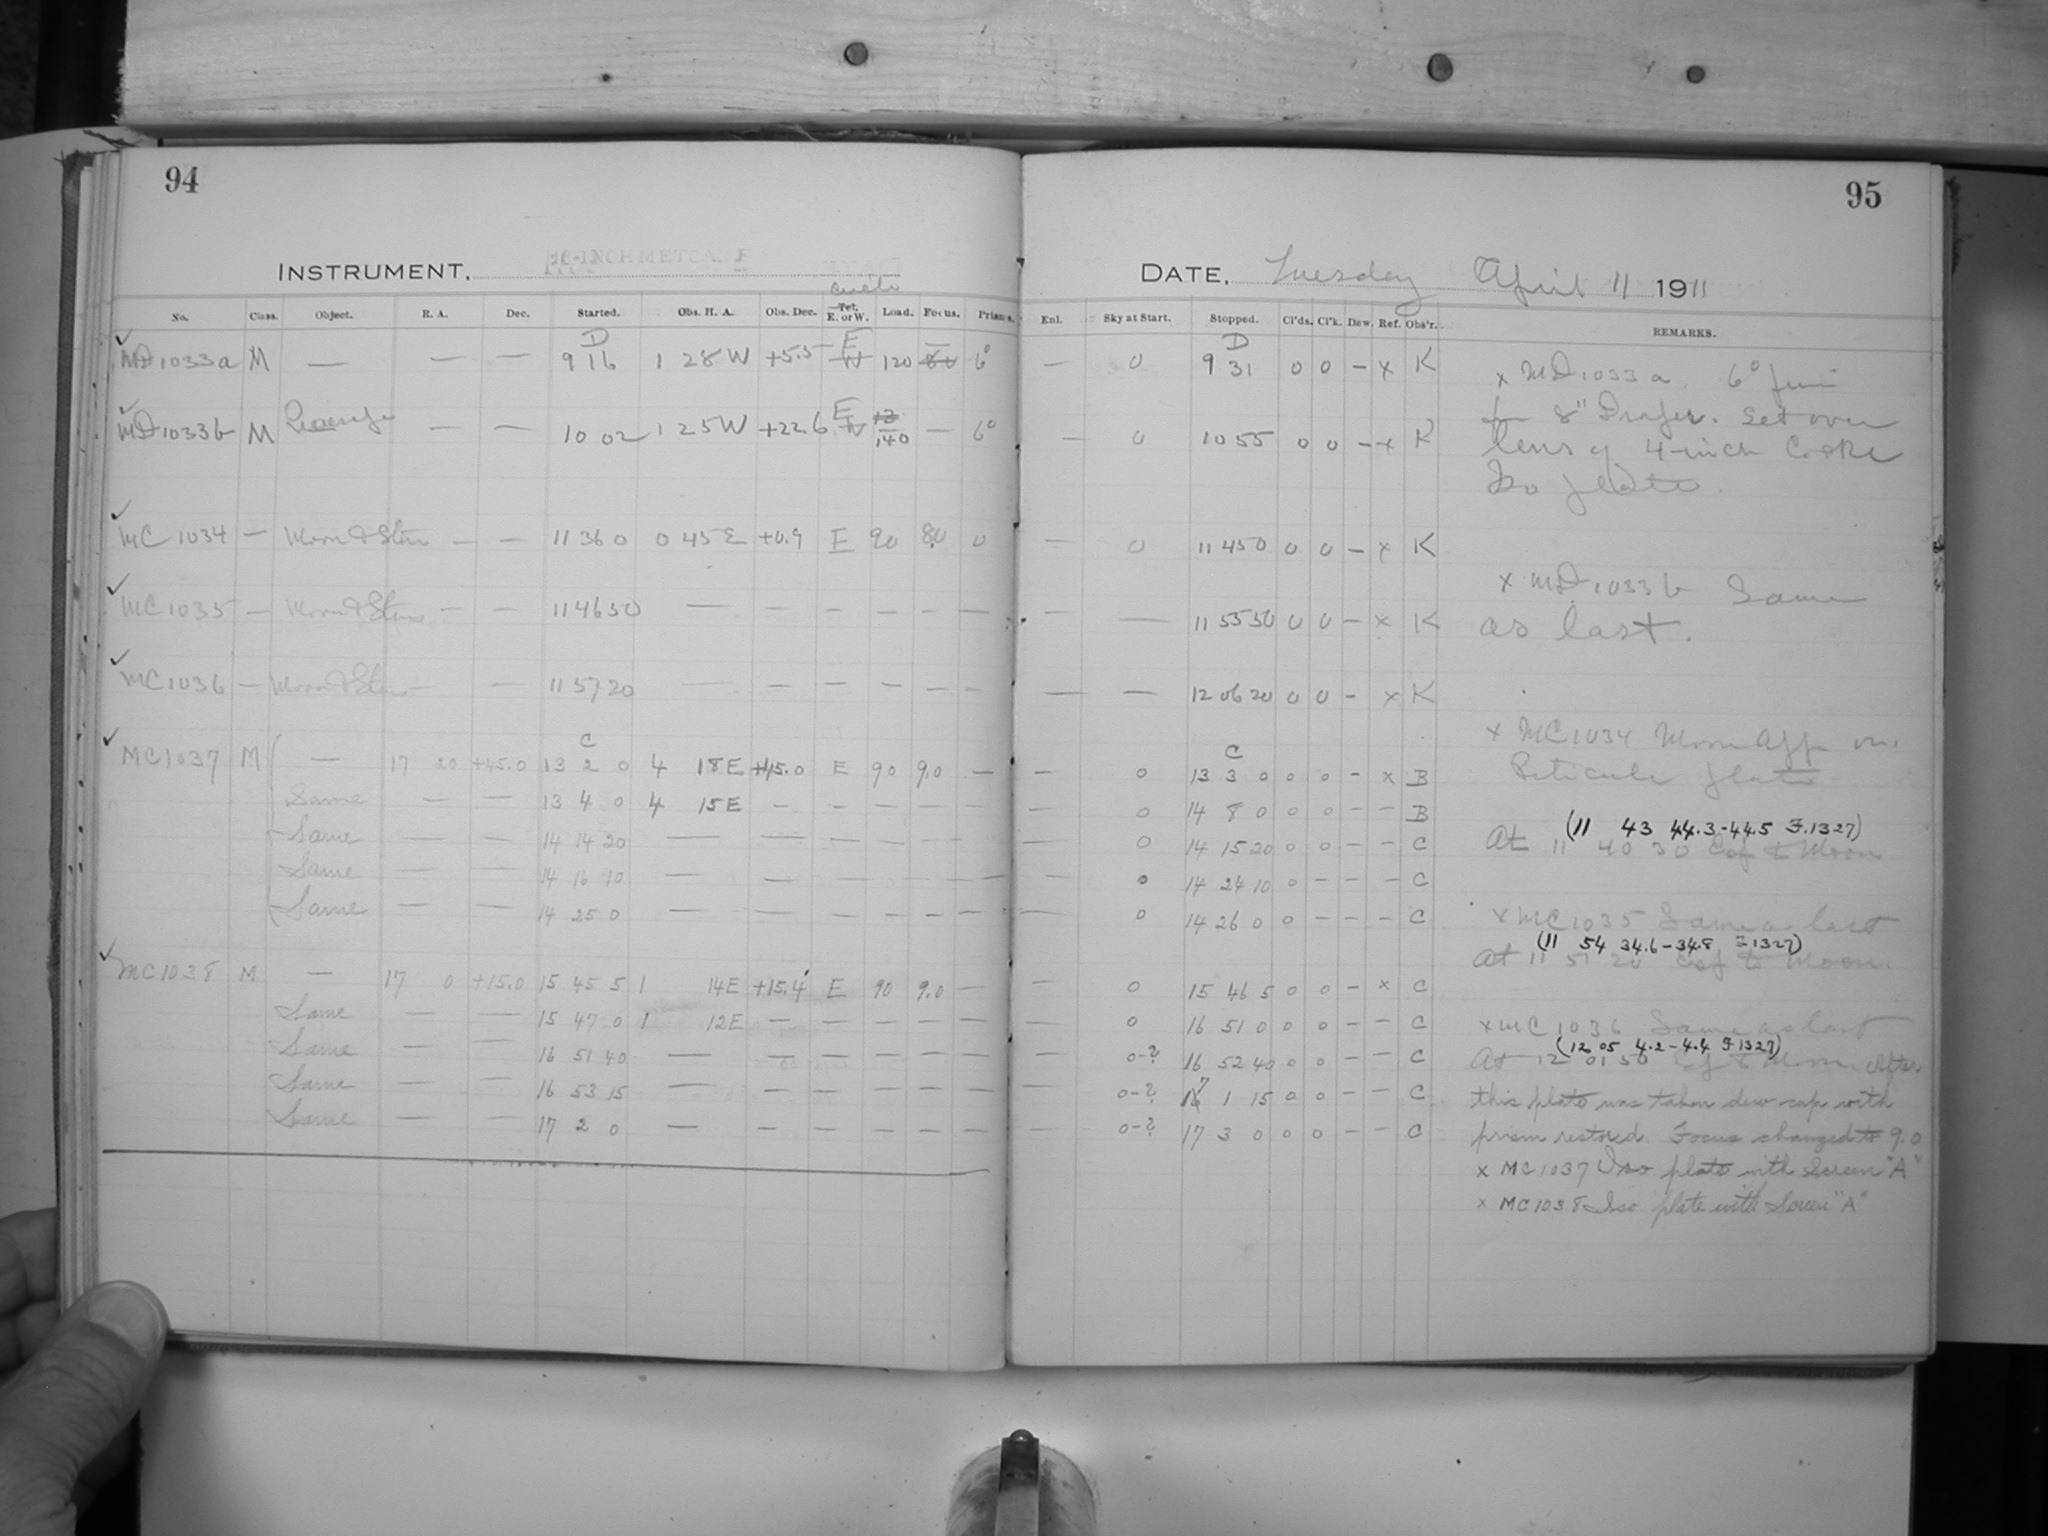 94
INSTRUMENT. 16-INCH METCALF
No. Class. Object. R. A. Dec. Started. Obs. H. A. Obs. Dec. Tel. E. or W. Load. Focus. Prisms.
D
MD1033a M — — — 9 16 1 28W +5.5 E W 120 8.0 6°
MD1033b M — — 10 02 1 25W +22.6 E W 12 140 — 6°
MC 1034 — Moon & Stars — — 11 36 0 0 45E +0.9 E 90 8.0 0
MC1035 — Moon & Stars — — 11 46 50 — — — — — —
MC1036 — Moon & Stars — — 11 57 20 — — — — — —
C
MC1037 M — 17 20 +45.0 13 2 0 4 18E +45.0 E 90 9.0 —
Same — — 13 4 0 4 15E — — — — —
Same — — 14 14 20 — — — — — —
Same — — 14 16 10 — — — — — —
Same — — 14 25 0 — — — — — —
MC1038 M — 17 0 +15.0 15 45 5 1 14E +15.4 E 90 9.0 —
Same — — 15 47 0 1 12E — — — — —
Same — — 16 51 40 — — — — — —
Same — — 16 53 15 — — — — — —
Same — — 17 2 0 — — — — — —
95
DATE. Tuesday April 11 1911
Enl. Sky at Start. Stopped. Cl'ds. Cl'k. Dew. Ref. Obs'r. REMARKS.
D
— 0 9 31 0 0 — x K
— 0 10 55 0 0 — x K
— 0 11 45 0 0 0 — x K
— — 11 55 50 0 0 — x K
— — 12 06 20 0 0 — x K
C
— 0 13 3 0 0 0 — x B
— 0 14 8 0 0 0 — — B
0 14 15 20 0 0 — — C
0 14 24 10 0 — — — C
— 0 14 26 0 0 — — — C
— 0 15 46 5 0 0 — x C
— 0 16 51 0 0 0 — — C
— 0-? 16 52 40 0 0 — — C
— 0-? 17 1 15 0 0 — — C
— 0-? 17 3 0 0 0 — — C
x MD1033a. 6°
for 8" Draper. Set over
lens of 4-inch Cooke
Iso plate
x MD1033b Same
as last.
x MC1034 Moon App on
Reticule plate
(11 43 44.3-44.5 F.1327)
At 11 40 30 to Moon
x MC1035 Same as last
(11 54 34.6-34.8 F1327)
at 11 51 20 to Moon.
x MC1036 Same as last
(12 05 4.2-4.4 F1327)
At 12 01 50 to Moon. After
this plate was taken dew cap with
prism restored. Focus changed to 9.0
x MC1037 Iso plate with Screen "A"
x MC1038 Iso plate with Screen "A"